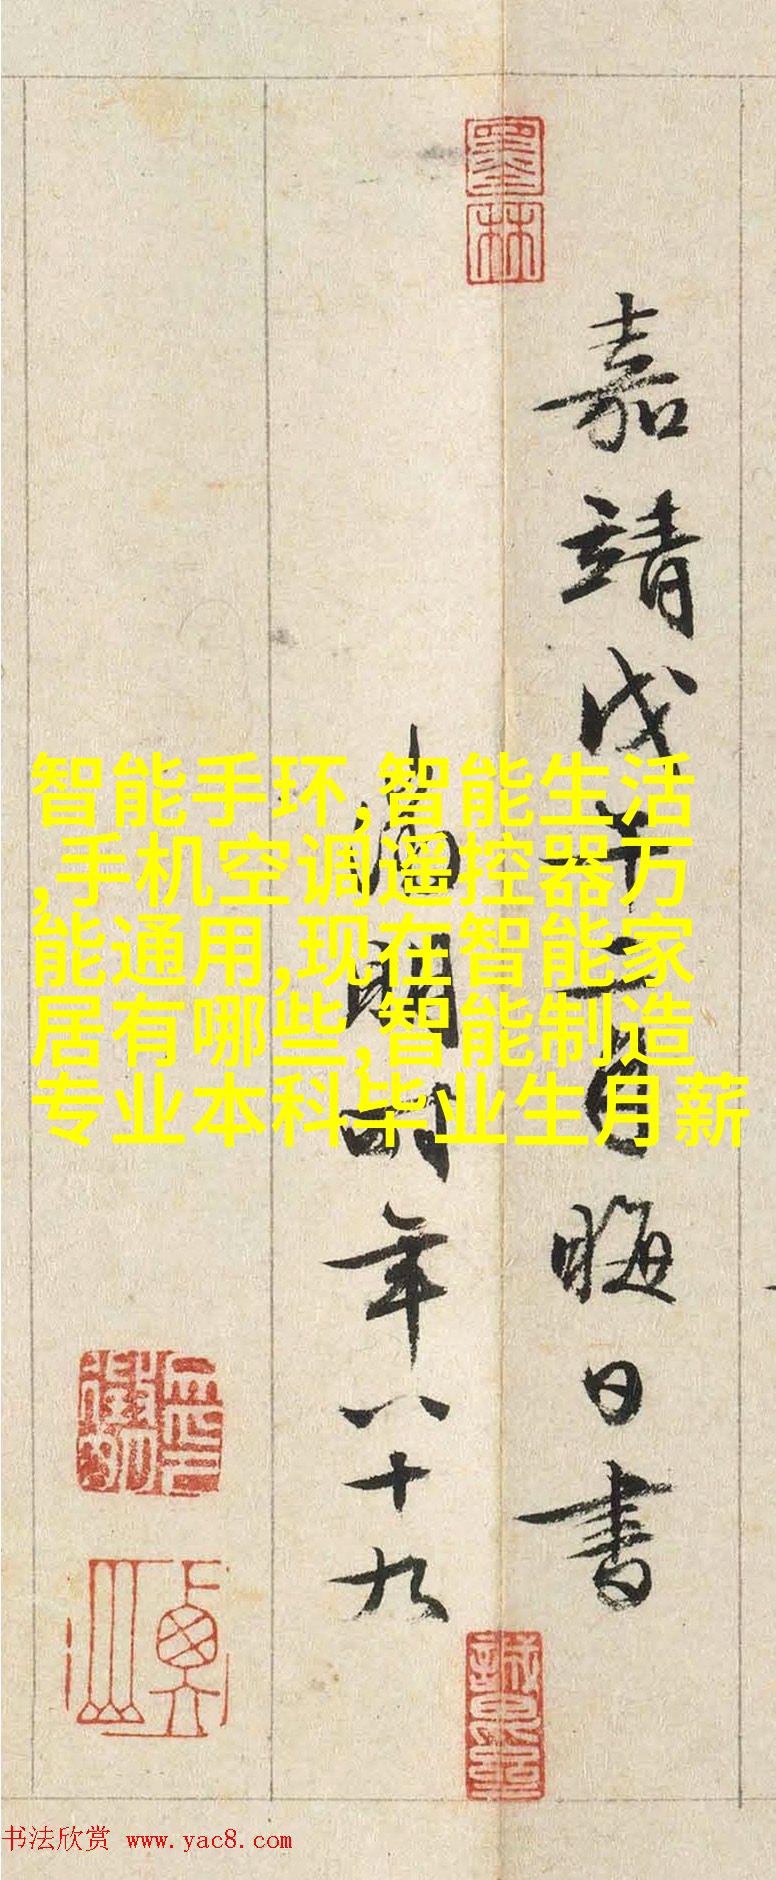 墨林
嘉靖戊午二月晦日書
徵明時年八十九
智能手环,智能生活
,手机空调遥控器万
能通用,现在智能家
居有哪些,智能制造
专业本科毕业生月薪
书法欣赏 www.yac8.com